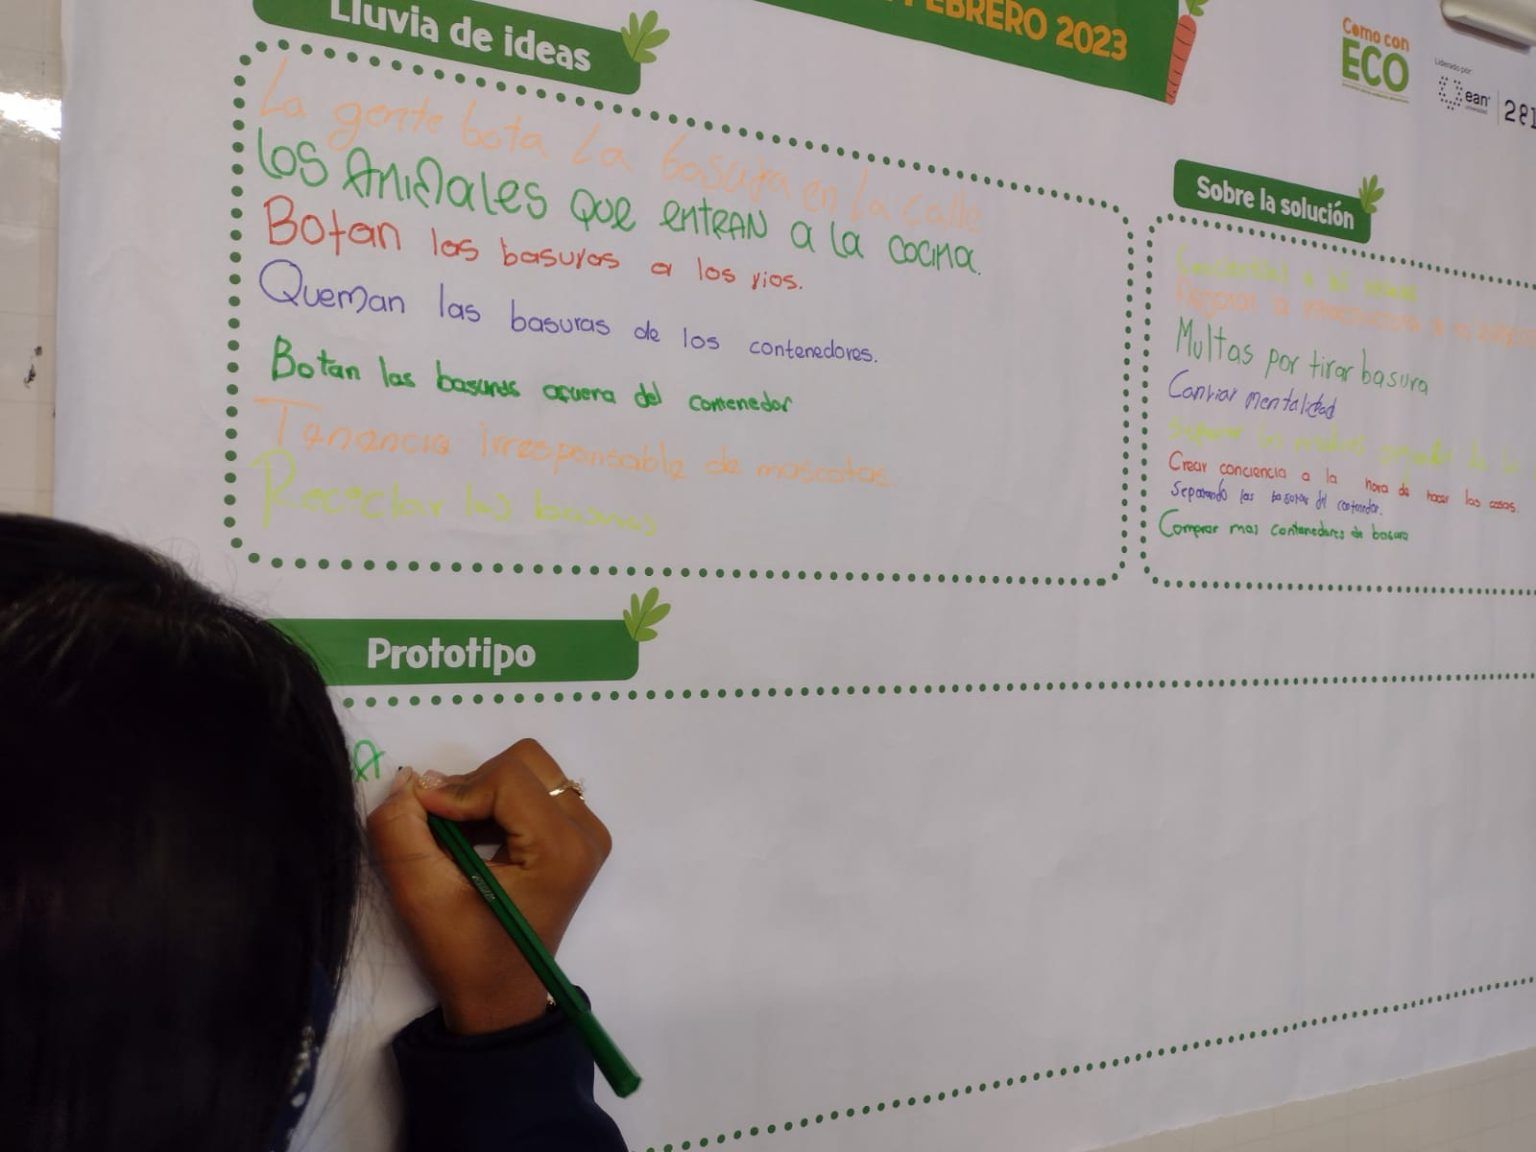 FEBRERO 2023
Como con
ECO
Liderado por:
ean
281
Lluvia de ideas
La gente bota La basura en la calle
Los Animales que entran a la cocina.
Botan las basuras a los rios.
Queman las basuras de los contenedores.
Botan las basuras afuera del contenedor
Tenencia irresponsable de mascotas
Recicclar las basuras
Sobre la solución
Multas por tirar basura
Canviar mentalidad
Crear conciencia a la hora de hacer las cosas.
Separando las basuras del contenedor.
Comprar mas contenedores de basura
Prototipo
A